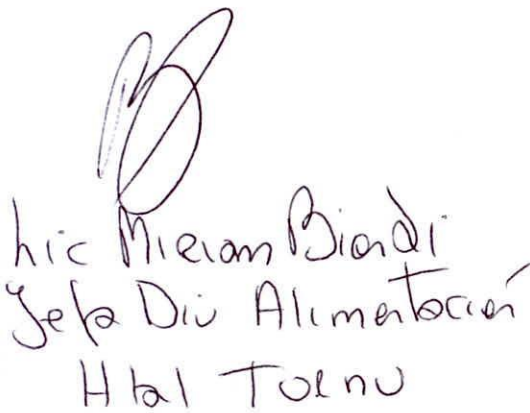 Lic Miriam Biondi
Jefa Div Alimentación
Htal Tornu